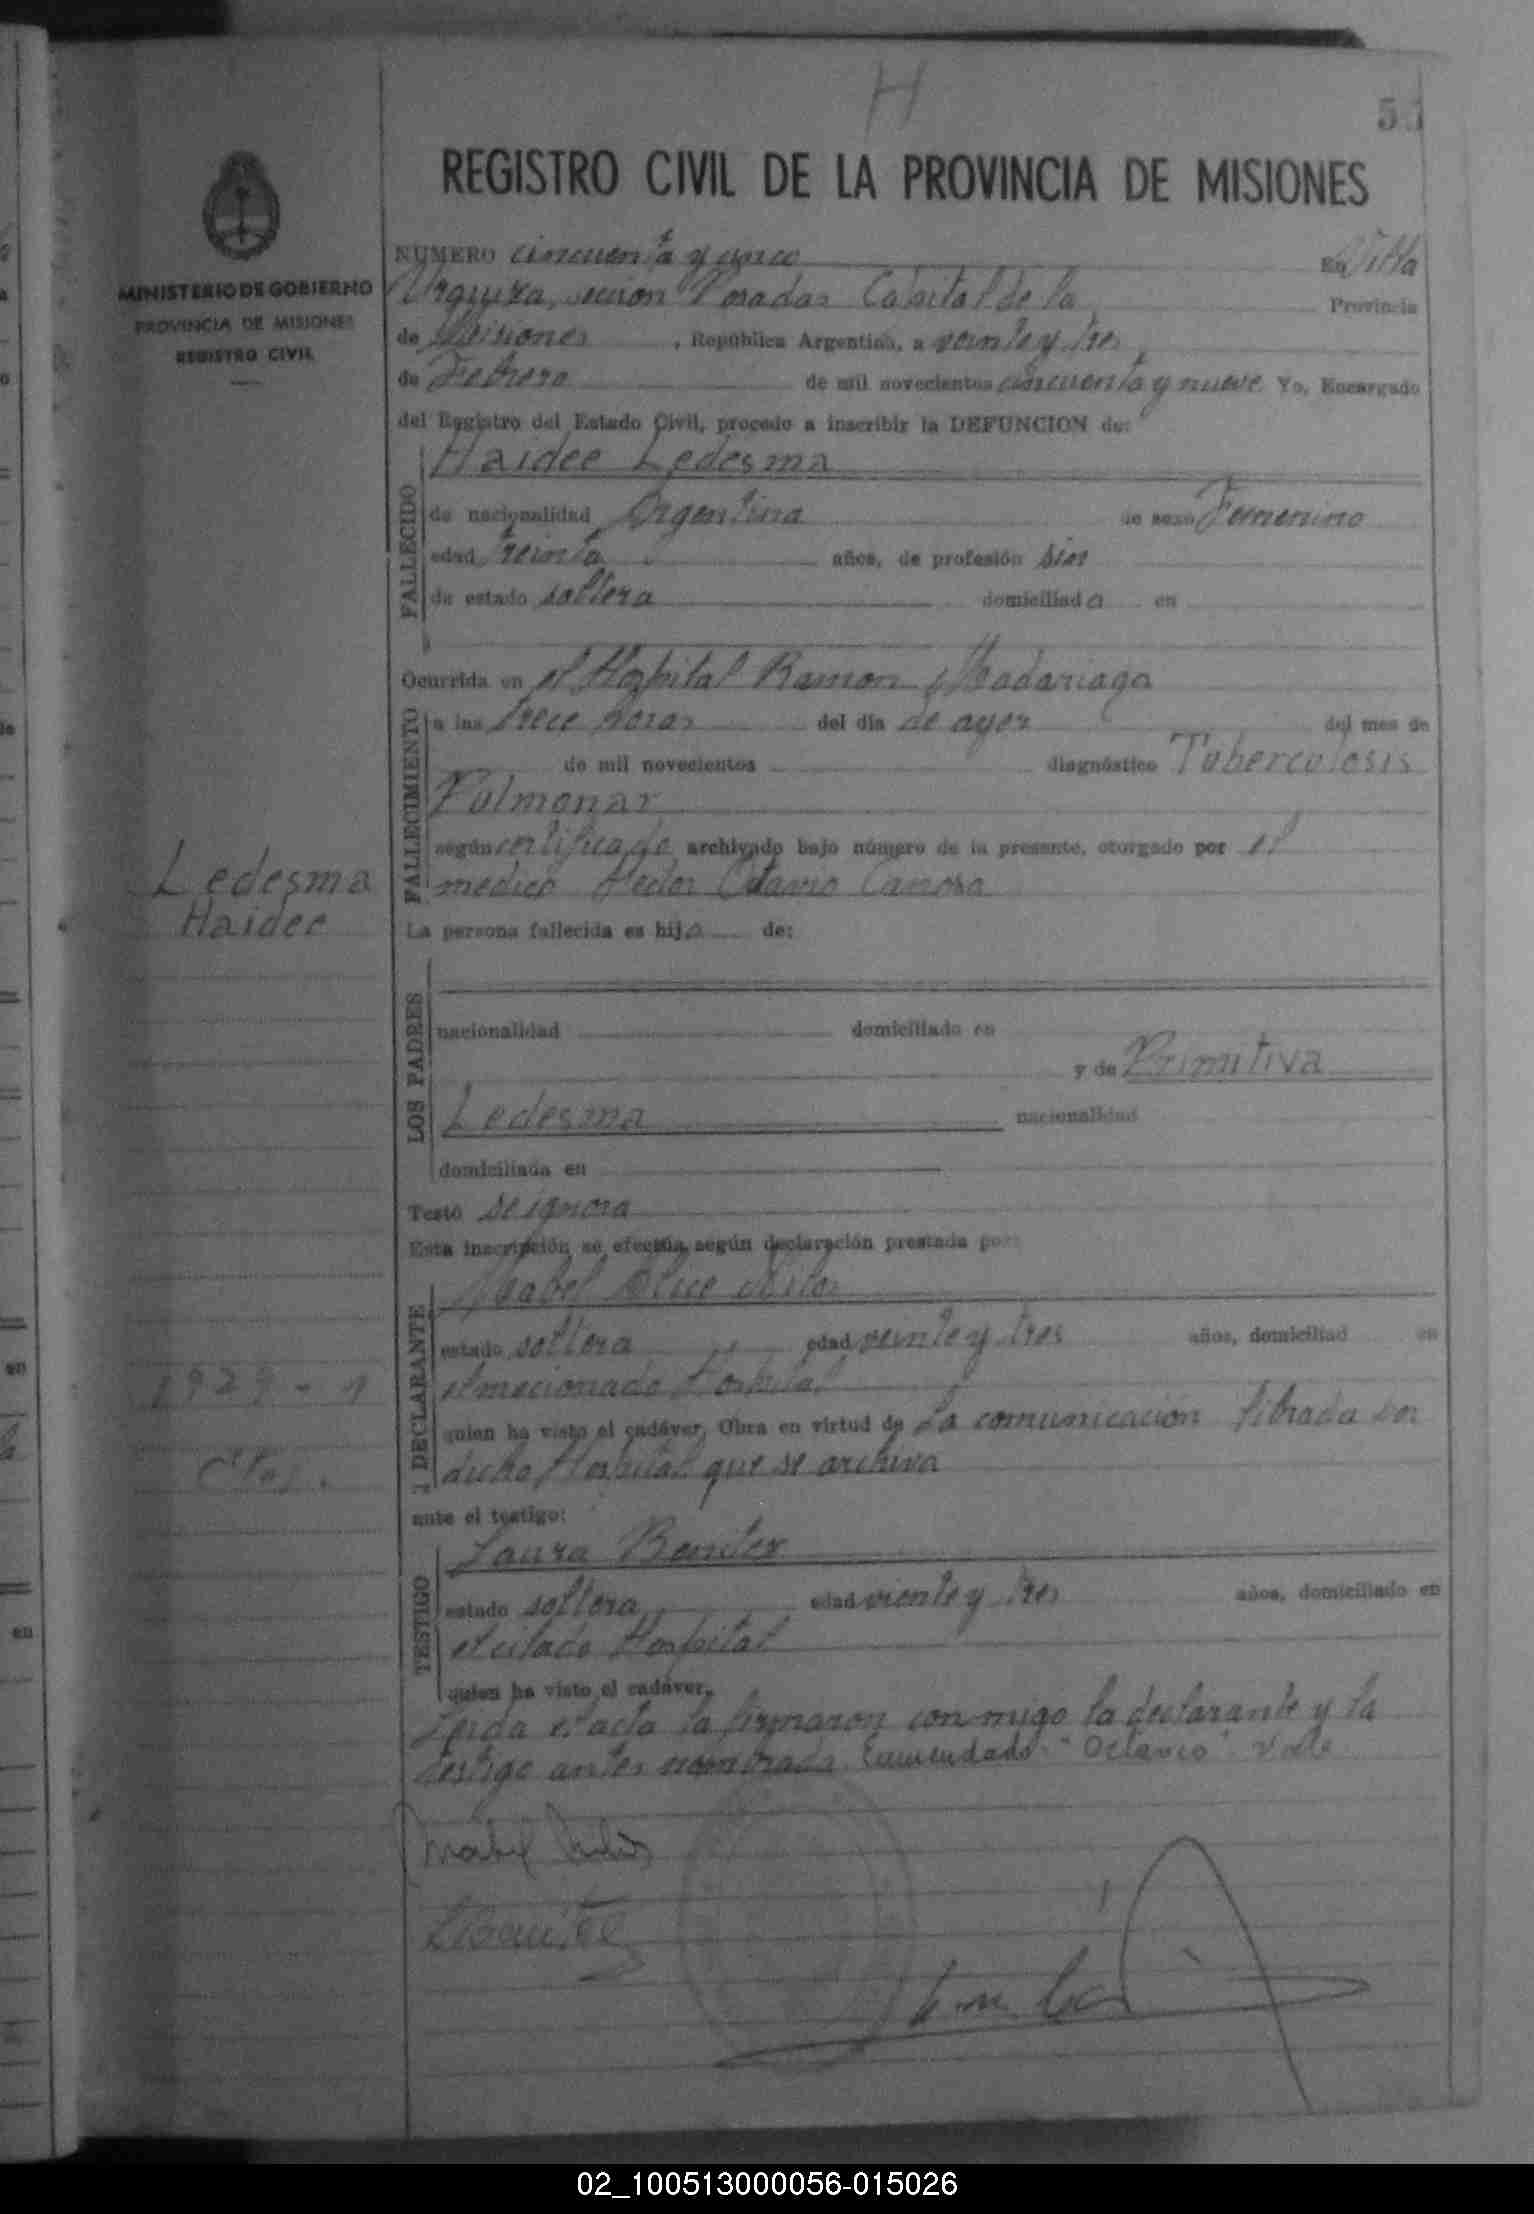 H
55
REGISTRO CIVIL DE LA PROVINCIA DE MISIONES
MINISTERIO DE GOBIERNO
PROVINCIA DE MISIONES
REGISTRO CIVIL
NUMERO cincuenta y cinco En Villa
Urquiza, sección Posadas Capital de la Provincia
de Misiones, República Argentina, a veinte y tres
de Febrero de mil novecientos cincuenta y nueve Yo, Encargado
del Registro del Estado Civil, procedo a inscribir la DEFUNCION de:
FALLECIDO
Haidee Ledesma
de nacionalidad Argentina de sexo Femenino
edad treinta años, de profesión
de estado soltera domiciliada en
Ocurrida en el Hospital Ramon Madariaga
FALLECIMIENTO
a las trece horas del día de ayer del mes de
de mil novecientos diagnóstico Tuberculosis
Pulmonar
según certificado archivado bajo número de la presente, otorgado por el
medico Hector Octavio
Ledesma
Haidee
La persona fallecida es hija de:
LOS PADRES
nacionalidad domiciliado en
y de Primitiva
Ledesma nacionalidad
domiciliada en
Testó se ignora
Esta inscripción se efectúa según declaración prestada por:
DECLARANTE
Mabel
estado soltera edad veinte y tres años, domiciliad en
el mecionado Hospital
quien ha visto el cadáver, Obra en virtud de la comunicación librada por
dicho Hospital que se archiva
1929 - 1
ante el testigo:
TESTIGO
Laura Benitez
estado soltera edad viente y tres años, domiciliado en
el citado Hospital
quien ha visto el cadáver,
Leida el acta la firmaron conmigo la declarante y la
testigo antes nombrada. Enmendado: "Octavio". Vale
Mabel
LBenitez
02_100513000056-015026